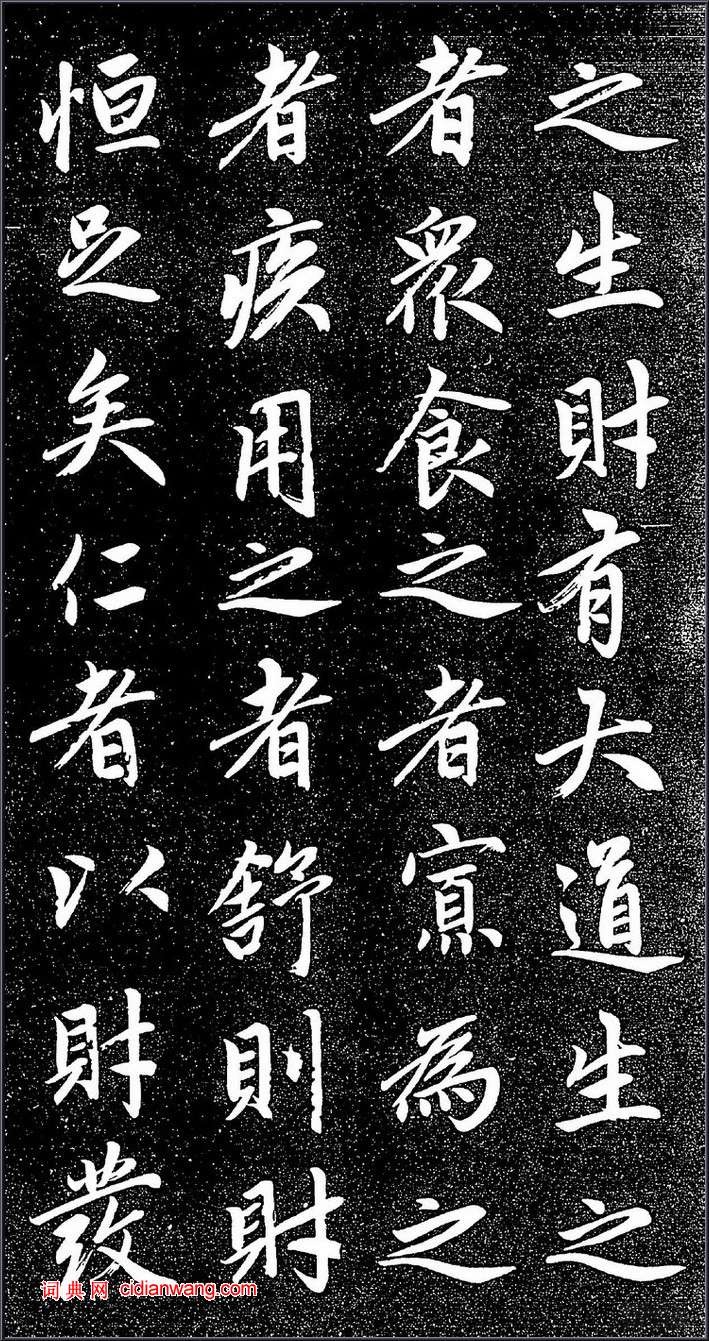 之生財有大道生之
者衆食之者寡為之
者疾用之者舒則財
恒足矣仁者以財發
词典网 cidianwang.com